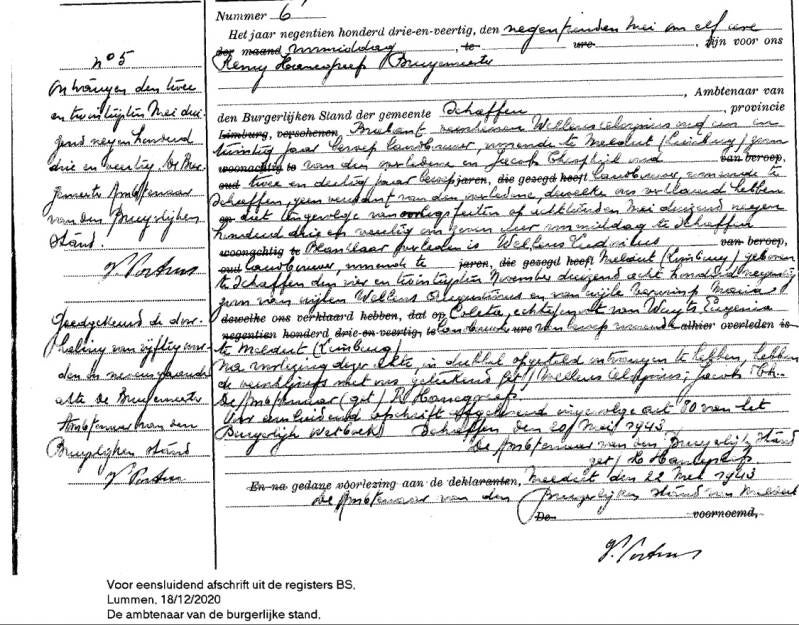 Nummer 6
Het jaar negentien honderd drie-en-veertig, den negentienden Mei om elf ure
der maand voormiddag, te ure, zijn voor ons
Remy Hanegreef Burgemeester
, Ambtenaar van
den Burgerlijken Stand der gemeente Schaffen, provincie
Limburg, verschenen Brabant verschenen Wellens oud een en
twintig jaar beroep landbouwer, wonende te Meldert (Limburg) zoon
woonachtig te van den overledene en Jacob Theophiel oud van beroep,
oud twee en dertig jaar beroep jaren, die gezegd heeft landbouwer, wonende te
Schaffen, geen verwant van den overledene, dewelke ons verklaard hebben
op dat ten gevolge van oorlogsfeiten op achttienden Mei duizend negen
honderd drie en veertig om zeven uur voormiddag te Schaffen
woongchtig te Blanklaar overleden is Wellens Ludovicus van beroep,
oud landbouwer, wonende te jaren, die gezegd heeft Meldert (Limburg) geboren
te Schaffen den vier en twintigsten November duizend acht honderd negentig
zoon van wijlen Wellens Augustinus en van wijlen Maria
dewelke ons verklaard hebben, dat op Coleta, echtgenoot van Wuyts Eugenia
negentien honderd drie-en-veertig te landbouwster ure van beroep wonende alhier overleden is
te Meldert (Limburg)
Na voorlezing dezer akte, in dubbel opgesteld ontvangen te hebben, hebben
de verschijners met ons geteekend (get) Wellens ; Jacob Th.
De Ambtenaar (get) R Hanegreef.
Voor eensluidend afschrift afgeleverd ingevolge art 80 van het
Burgerlijk Wetboek) Schaffen den 20 Mei 1943
De Ambtenaar van den Burgerlijk Stand
get/ R Hanegreef.
En na gedane voorlezing aan de deklaranten, Meldert den 22 Mei 1943
De Ambtenaar van den Burgerlijken stand van Meldert
De voornoemd,
n° 5
Ontvangen den twee
en twintigsten Mei dui-
zend negen honderd
drie en veertig. De Bur-
gemeester Ambtenaar
van den Burgerlijken
Stand.
Goedgekeurd de door-
haling van vijftig woor-
den in nevenstaande
akte De Burgemeester
Ambtenaar van den
Burgerlijken stand
Voor eensluidend afschrift uit de registers BS.
Lummen, 18/12/2020
De ambtenaar van de burgerlijke stand,